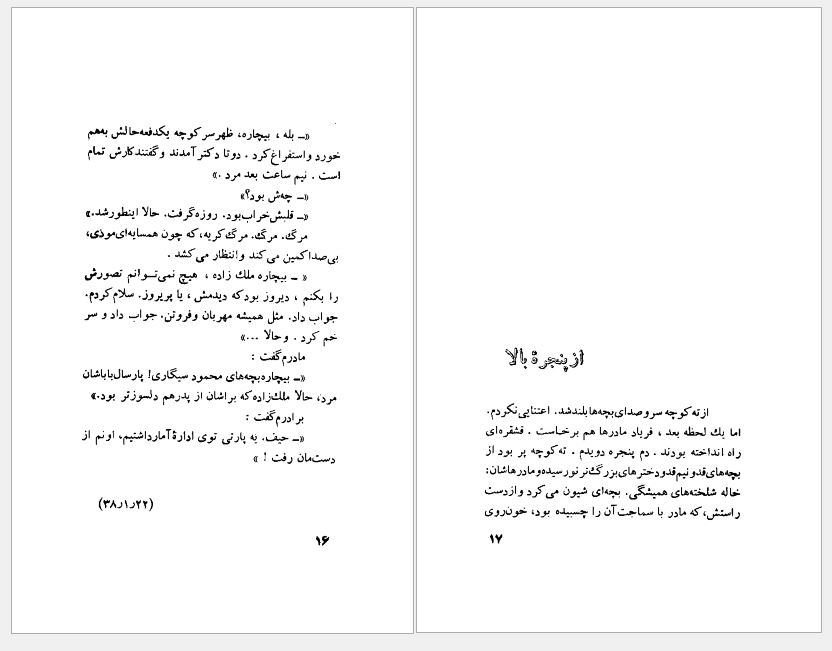 «ــ بله ، بیچاره، ظهرسرکوچه یکدفعه‌حالش به‌هم
خورد و استفراغ‌کرد . دوتا دکتر آمدند و گفتندکارش تمام
است . نیم ساعت بعد مرد .»
«ــ چه‌ش بود؟»
«ــ قلبش‌خراب‌بود. روزه‌گرفت. حالا اینطورشد.»
مرگ. مرگ. مرگ‌کریه،که چون همسایه‌ای‌موذی،
بی‌صداکمین می‌کند و انتظار می‌کشد .
« ــ بیچاره ملك زاده ، هیچ نمی‌تـوانم تصورش
را بکنم ، دیروز بودکه دیدمش ، یا پریروز. سلام‌کردم.
جواب داد. مثل همیشه مهربان وفروتن. جواب داد و سر
خم کرد . و حالا ...»
مادرم‌گفت :
«ــ بیچاره‌بچه‌های محمود سیگاری! پارسال‌باباشان
مرد، حالا ملك‌زاده‌که براشان از پدرهم دلسوزتر بود.»
برادرم‌گفت :
«ــ حیف. یه پارتی توی ادارۀ‌آمارداشتیم، اونم از
دست‌مان رفت ! »
(۳۸٫۱٫۲۲)
۱۶
از پنجرۀ بالا
از ته‌کوچه سروصدای‌بچه‌ها‌بلندشد. اعتنایی‌نکردم.
اما یك لحظه بعد ، فریاد مادرها هم برخـاست . قشقره‌ای
راه انداخته بودند . دم پنجره دویدم . ته‌کوچه پر بود از
بچه‌های‌قدونیم‌قدودخترهای‌بزرگ‌تر‌نورسیده‌و‌مادرهاشان:
خاله شلخته‌های همیشگی. بچه‌ای شیون می‌کرد و ازدست
راستش،که مادر با سماجت‌آن را چسبیده بود، خون‌روی
۱۷